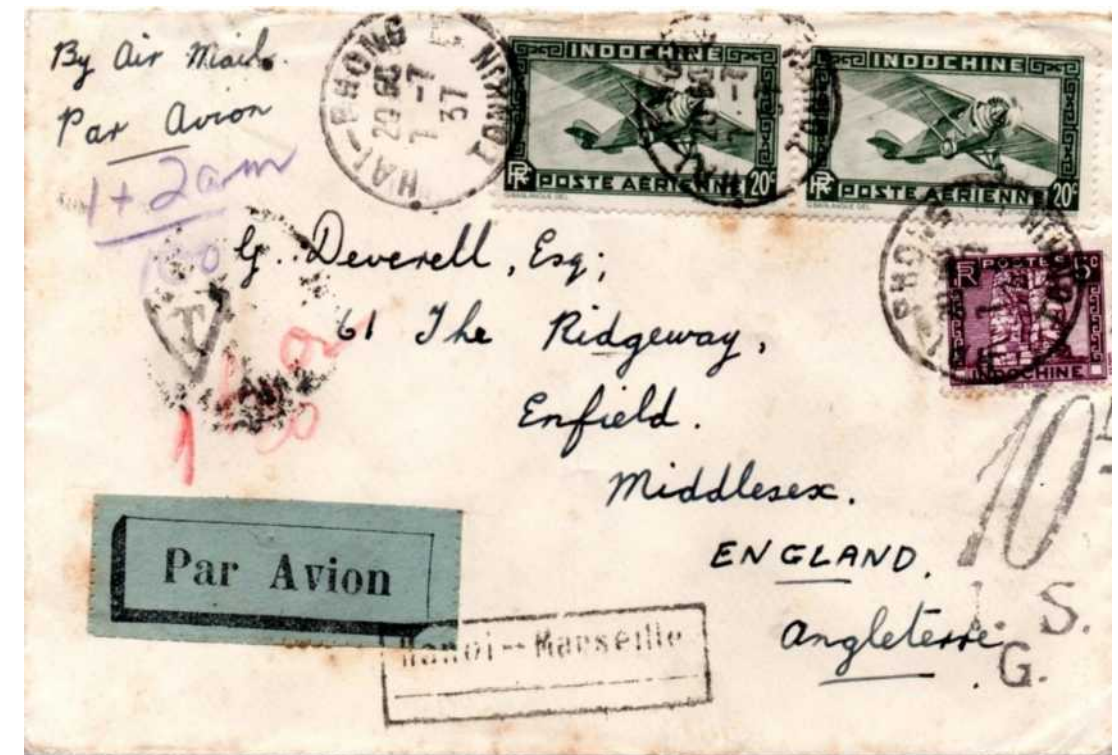 By Air Mail.
Par Avion
1+2am
HAI-PHONG TONKIN
7-7
37
INDOCHINE
RF POSTE AÉRIENNE 20c
INDOCHINE
RF POSTE AÉRIENNE 20c
RF POSTES 5c
INDOCHINE
T
G. Deverell, Esq;
61 The Ridgeway,
Enfield.
Middlesex.
ENGLAND.
Angleterre
1
10
I. S.
G.
Par Avion
Hanoi-Marseille